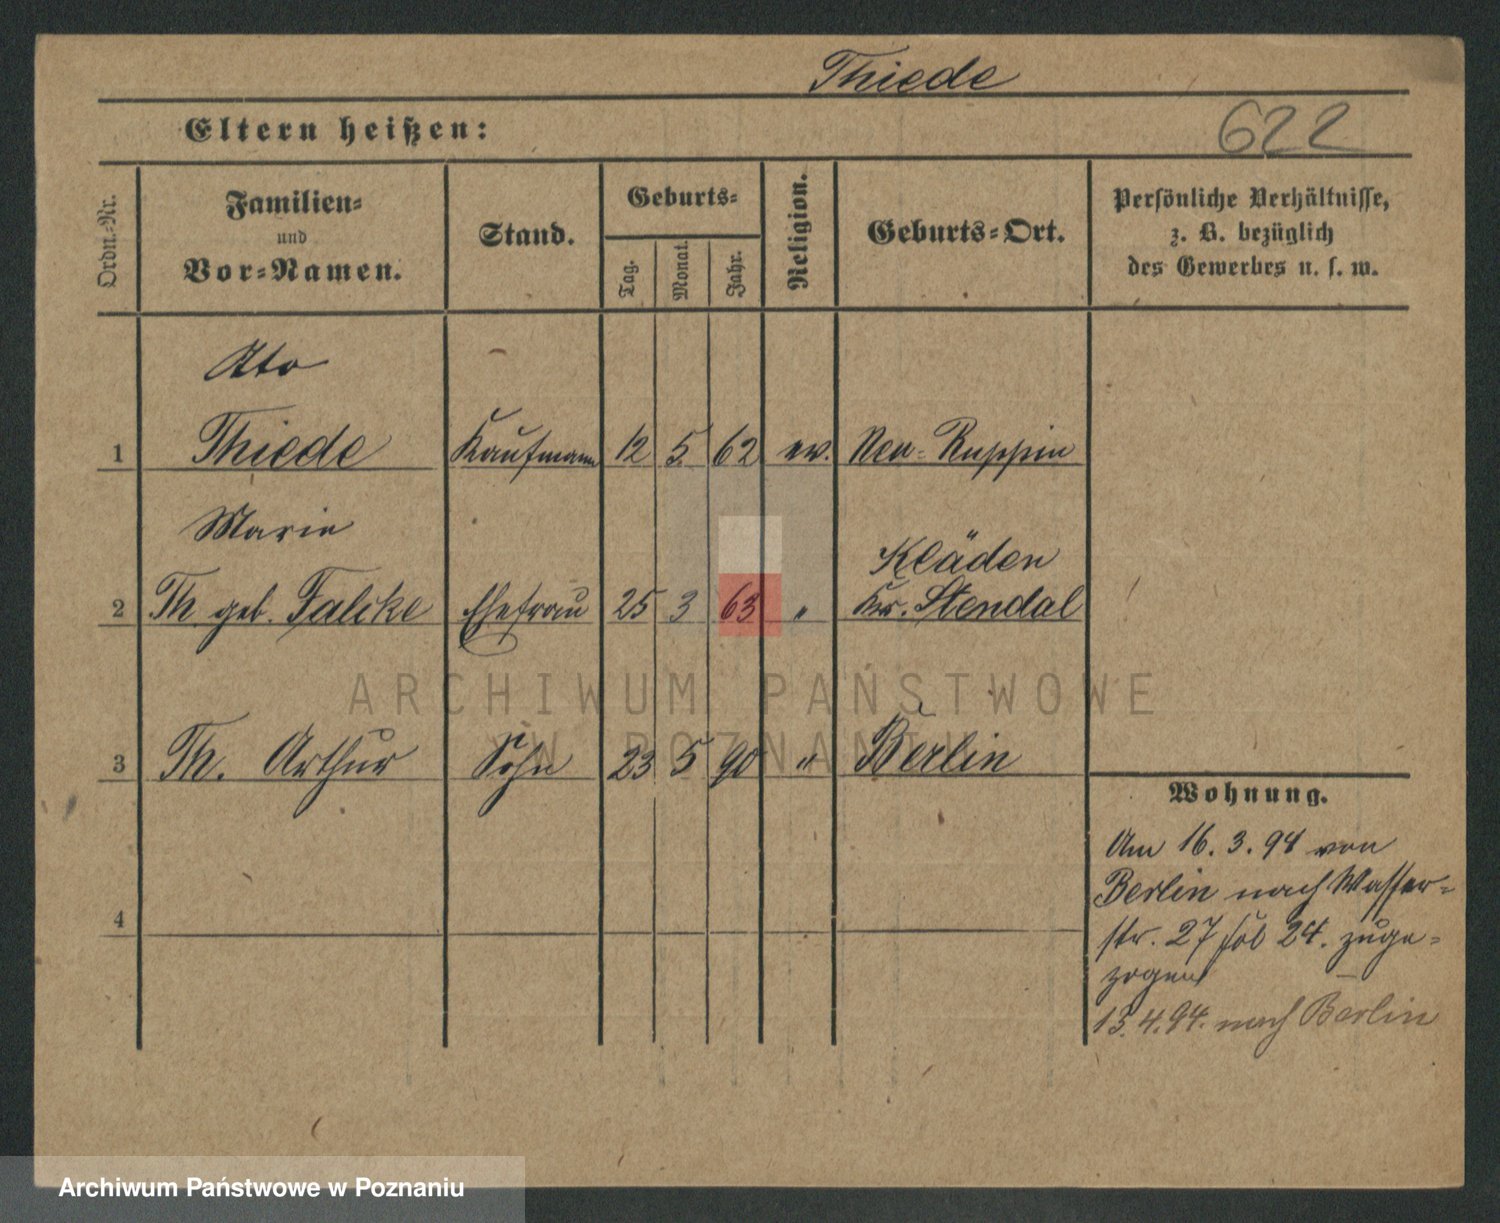 Thiede
Eltern heißen:
622
Ordn.-Nr.
Familien-
und
Vor-Namen.
Stand.
Geburts-
Tag.
Monat.
Jahr.
Religion.
Geburts-Ort.
Persönliche Verhältnisse,
z. B. bezüglich
des Gewerbes u. s. w.
Otto
1 Thiede Kaufmann 12 5 62 ev. Neu-Ruppin
Marie
Kläden
2 Th. geb. Falcke Ehefrau 25 3 63 " Kr. Stendal
ARCHIWUM PAŃSTWOWE
W POZNANIU
3 Th. Arthur Sohn 23 5 90 " Berlin
Wohnung.
Am 16. 3. 94 von
Berlin nach Wasser-
str. 27 bei 24. zuge-
zogen
13.4.94. nach Berlin
4
Archiwum Państwowe w Poznaniu